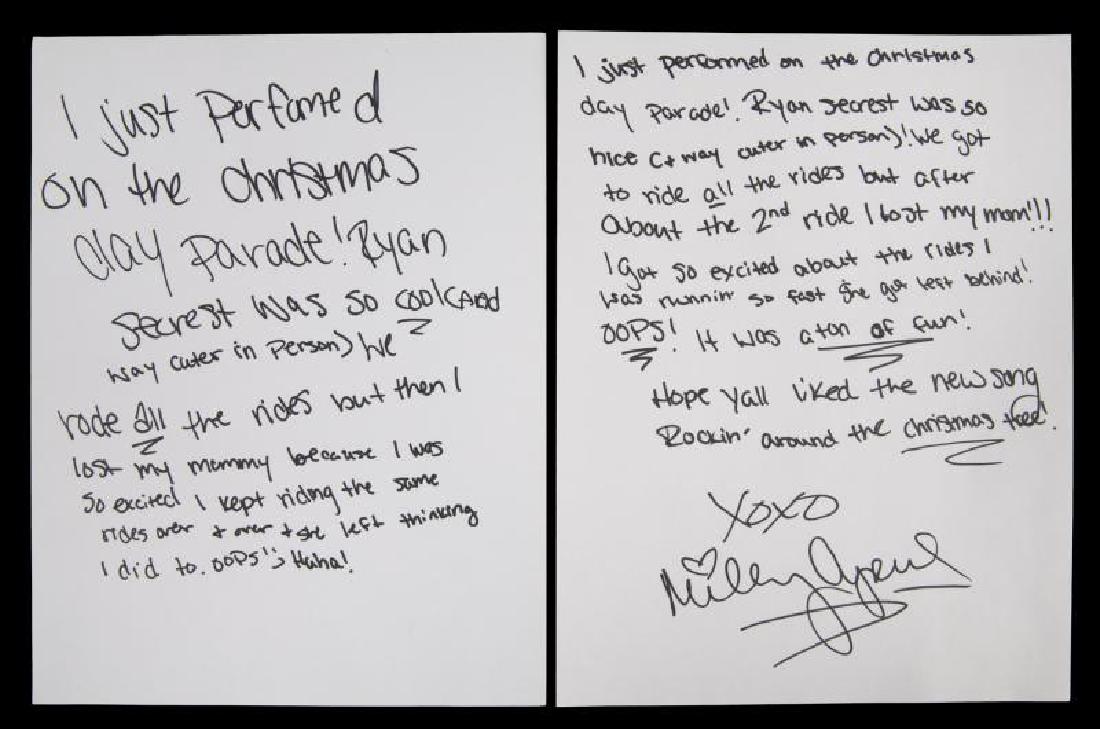 I just Perfomed
on the christmas
day Parade! Ryan
secrest was so cool (and
way cuter in person) We
rode all the rides but then I
lost my mommy because I was
so excited I kept riding the same
rides over + over + she left thinking
I did to. OOPS!! Haha!
I just performed on the christmas
day parade! Ryan secrest was so
nice (+ way cuter in person)! We got
to ride all the rides but after
about the 2nd ride I lost my mom!!!
I got so excited about the rides I
was runnin' so fast she got left behind!
OOPS! It was a ton of fun!
Hope yall liked the new song
Rockin' around the christmas tree!
XOXO
Miley Cyrus